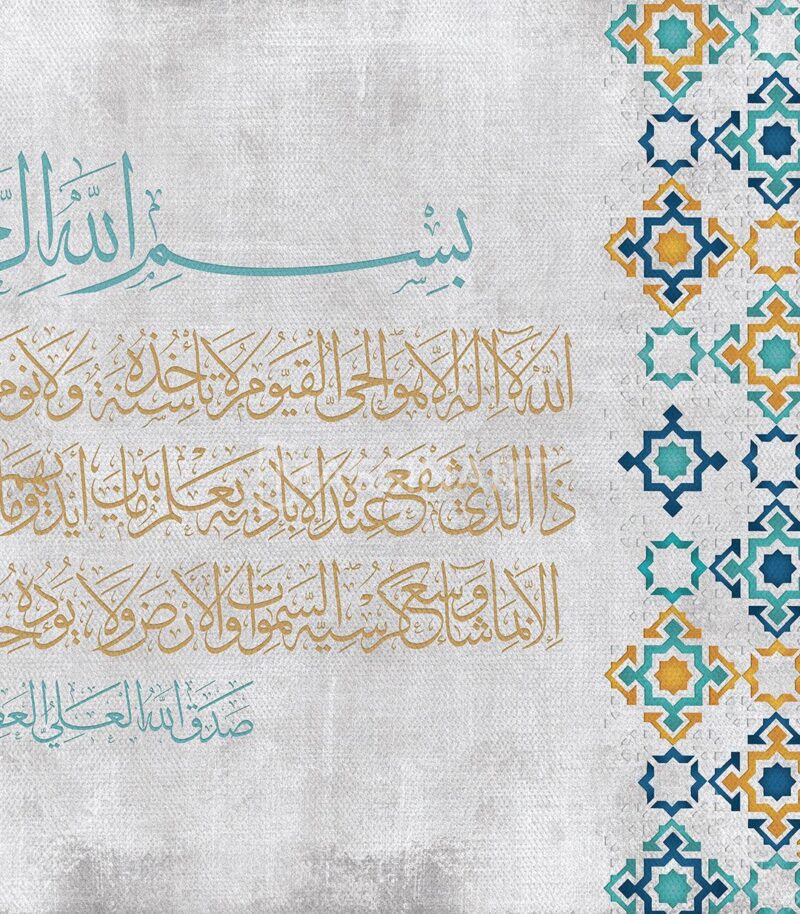 بِسْمِ اللهِ
اللهُ لَا إِلَهَ إِلَّا هُوَ الْحَيُّ الْقَيُّومُ لَا تَأْخُذُهُ سِنَةٌ وَلَا نَوْمٌ
ذَا الَّذِي يَشْفَعُ عِنْدَهُ إِلَّا بِإِذْنِهِ يَعْلَمُ مَا بَيْنَ أَيْدِيهِمْ وَمَا
إِلَّا بِمَا شَاءَ وَسِعَ كُرْسِيُّهُ السَّمَوَاتِ وَالْأَرْضَ وَلَا يَؤُدُهُ
صَدَقَ اللهُ الْعَلِيُّ